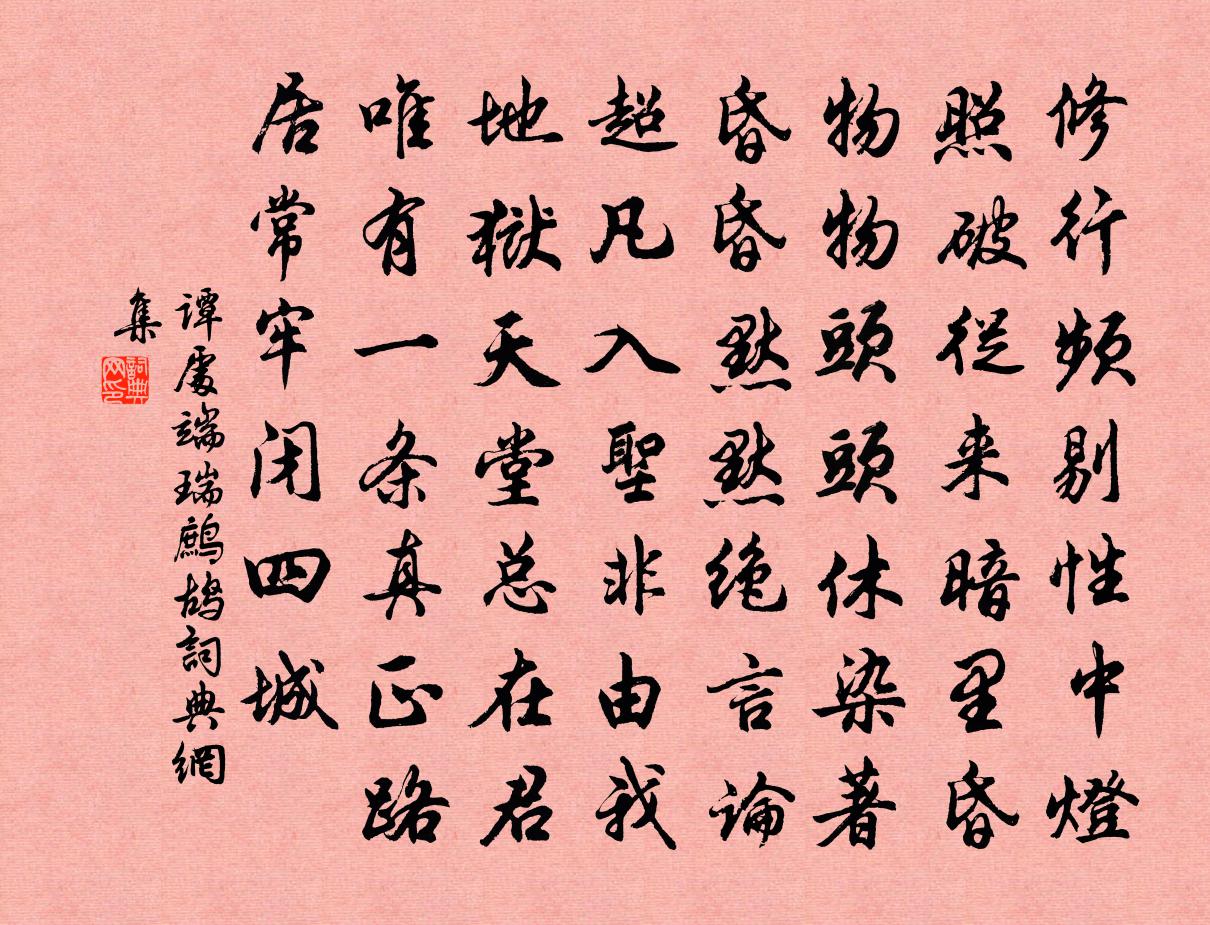 修行頻剔性中燈
照破從来暗里昏
物物頭頭休染著
昏昏默默绝言論
超凡入聖非由我
地獄天堂总在君
唯有一条真正路
居常牢闭四城
谭處端瑞鹧鸪詞典網
集
詞典
网印